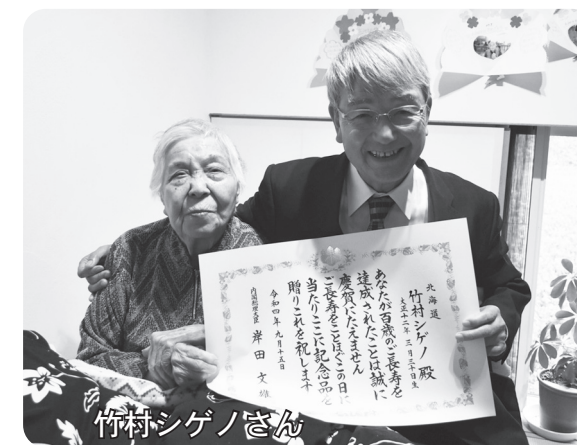 北海道
竹村シゲノ 殿
大正十二年 三月三十日生
あなたが百歳のご長寿を
達成されたことは誠に
慶賀にたえません
ご長寿をことほぐこの日に
当たりここに記念品を
贈りこれを祝します
令和四年 九月十五日
内閣総理大臣 岸田 文雄
竹村シゲノさん